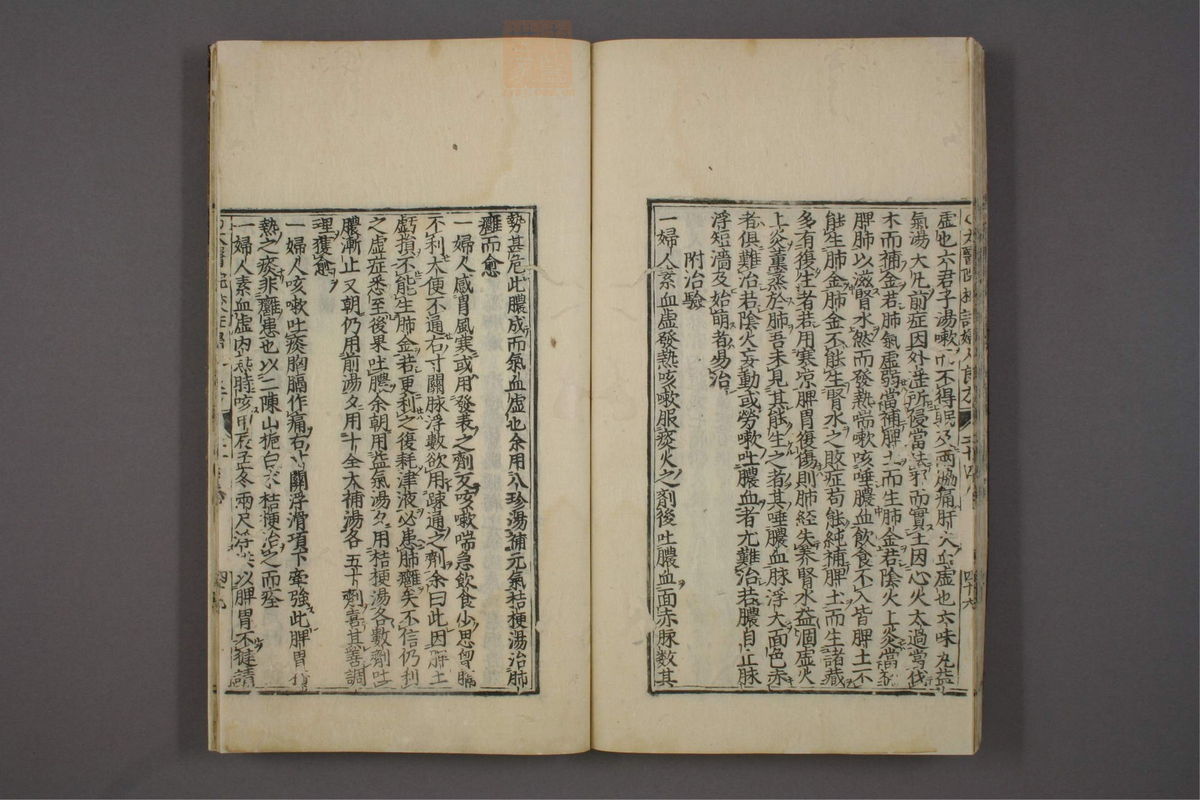 虚也六君子湯嗽而不得眠及兩脇痛肝火虚也六味丸益
氣湯大凡前症因外邪所侵當法邪而實土因心火太過當伐
木而補金若肺氣虚弱當補脾土而生肺金若陰火上炎當補
脾肺以滋腎水然而發熱喘嗽咳唾膿血飲食不入皆脾土不
能生肺金肺金不能生腎水之敗症苟能純補脾土而生諸藏
多有復生者若用寒凉脾胃復傷則肺經失養腎水益涸虚火
上炎薰蒸於肺吾未見其能生之者其唾膿血脉浮大面色赤
者俱難治若陰火妄動或勞嗽吐膿血者尤難治若膿自止脉
浮短濇及始萌者易治
附治驗
一婦人素血虚發熱咳嗽服痰火之劑後吐膿血面赤脉數其
勢甚危此膿成而氣血虚也余用八珍湯補元氣桔梗湯治肺
癰而愈
一婦人感冒風寒或用發表之劑反咳嗽喘急飲食少思胷膈
不利大便不通右寸關脉浮數欲用疎通之劑余曰此因脾土
虧損不能生肺金若更利之復耗津液必患肺癰矣不信仍利
之虚症悉至後果吐膿余朝用益氣湯夕用桔梗湯各數劑吐
膿漸止又朝仍用前湯夕用十全大補湯各五十劑喜其善調
理獲愈
一婦人咳嗽吐痰胸膈作痛右寸關浮滑項下牽強此脾胃積
熱之痰非癰患也以二陳山梔白朮桔梗治之而痊
一婦人素血虚内熱時咳甲辰孟冬兩尺浮洪以脾胃不健請